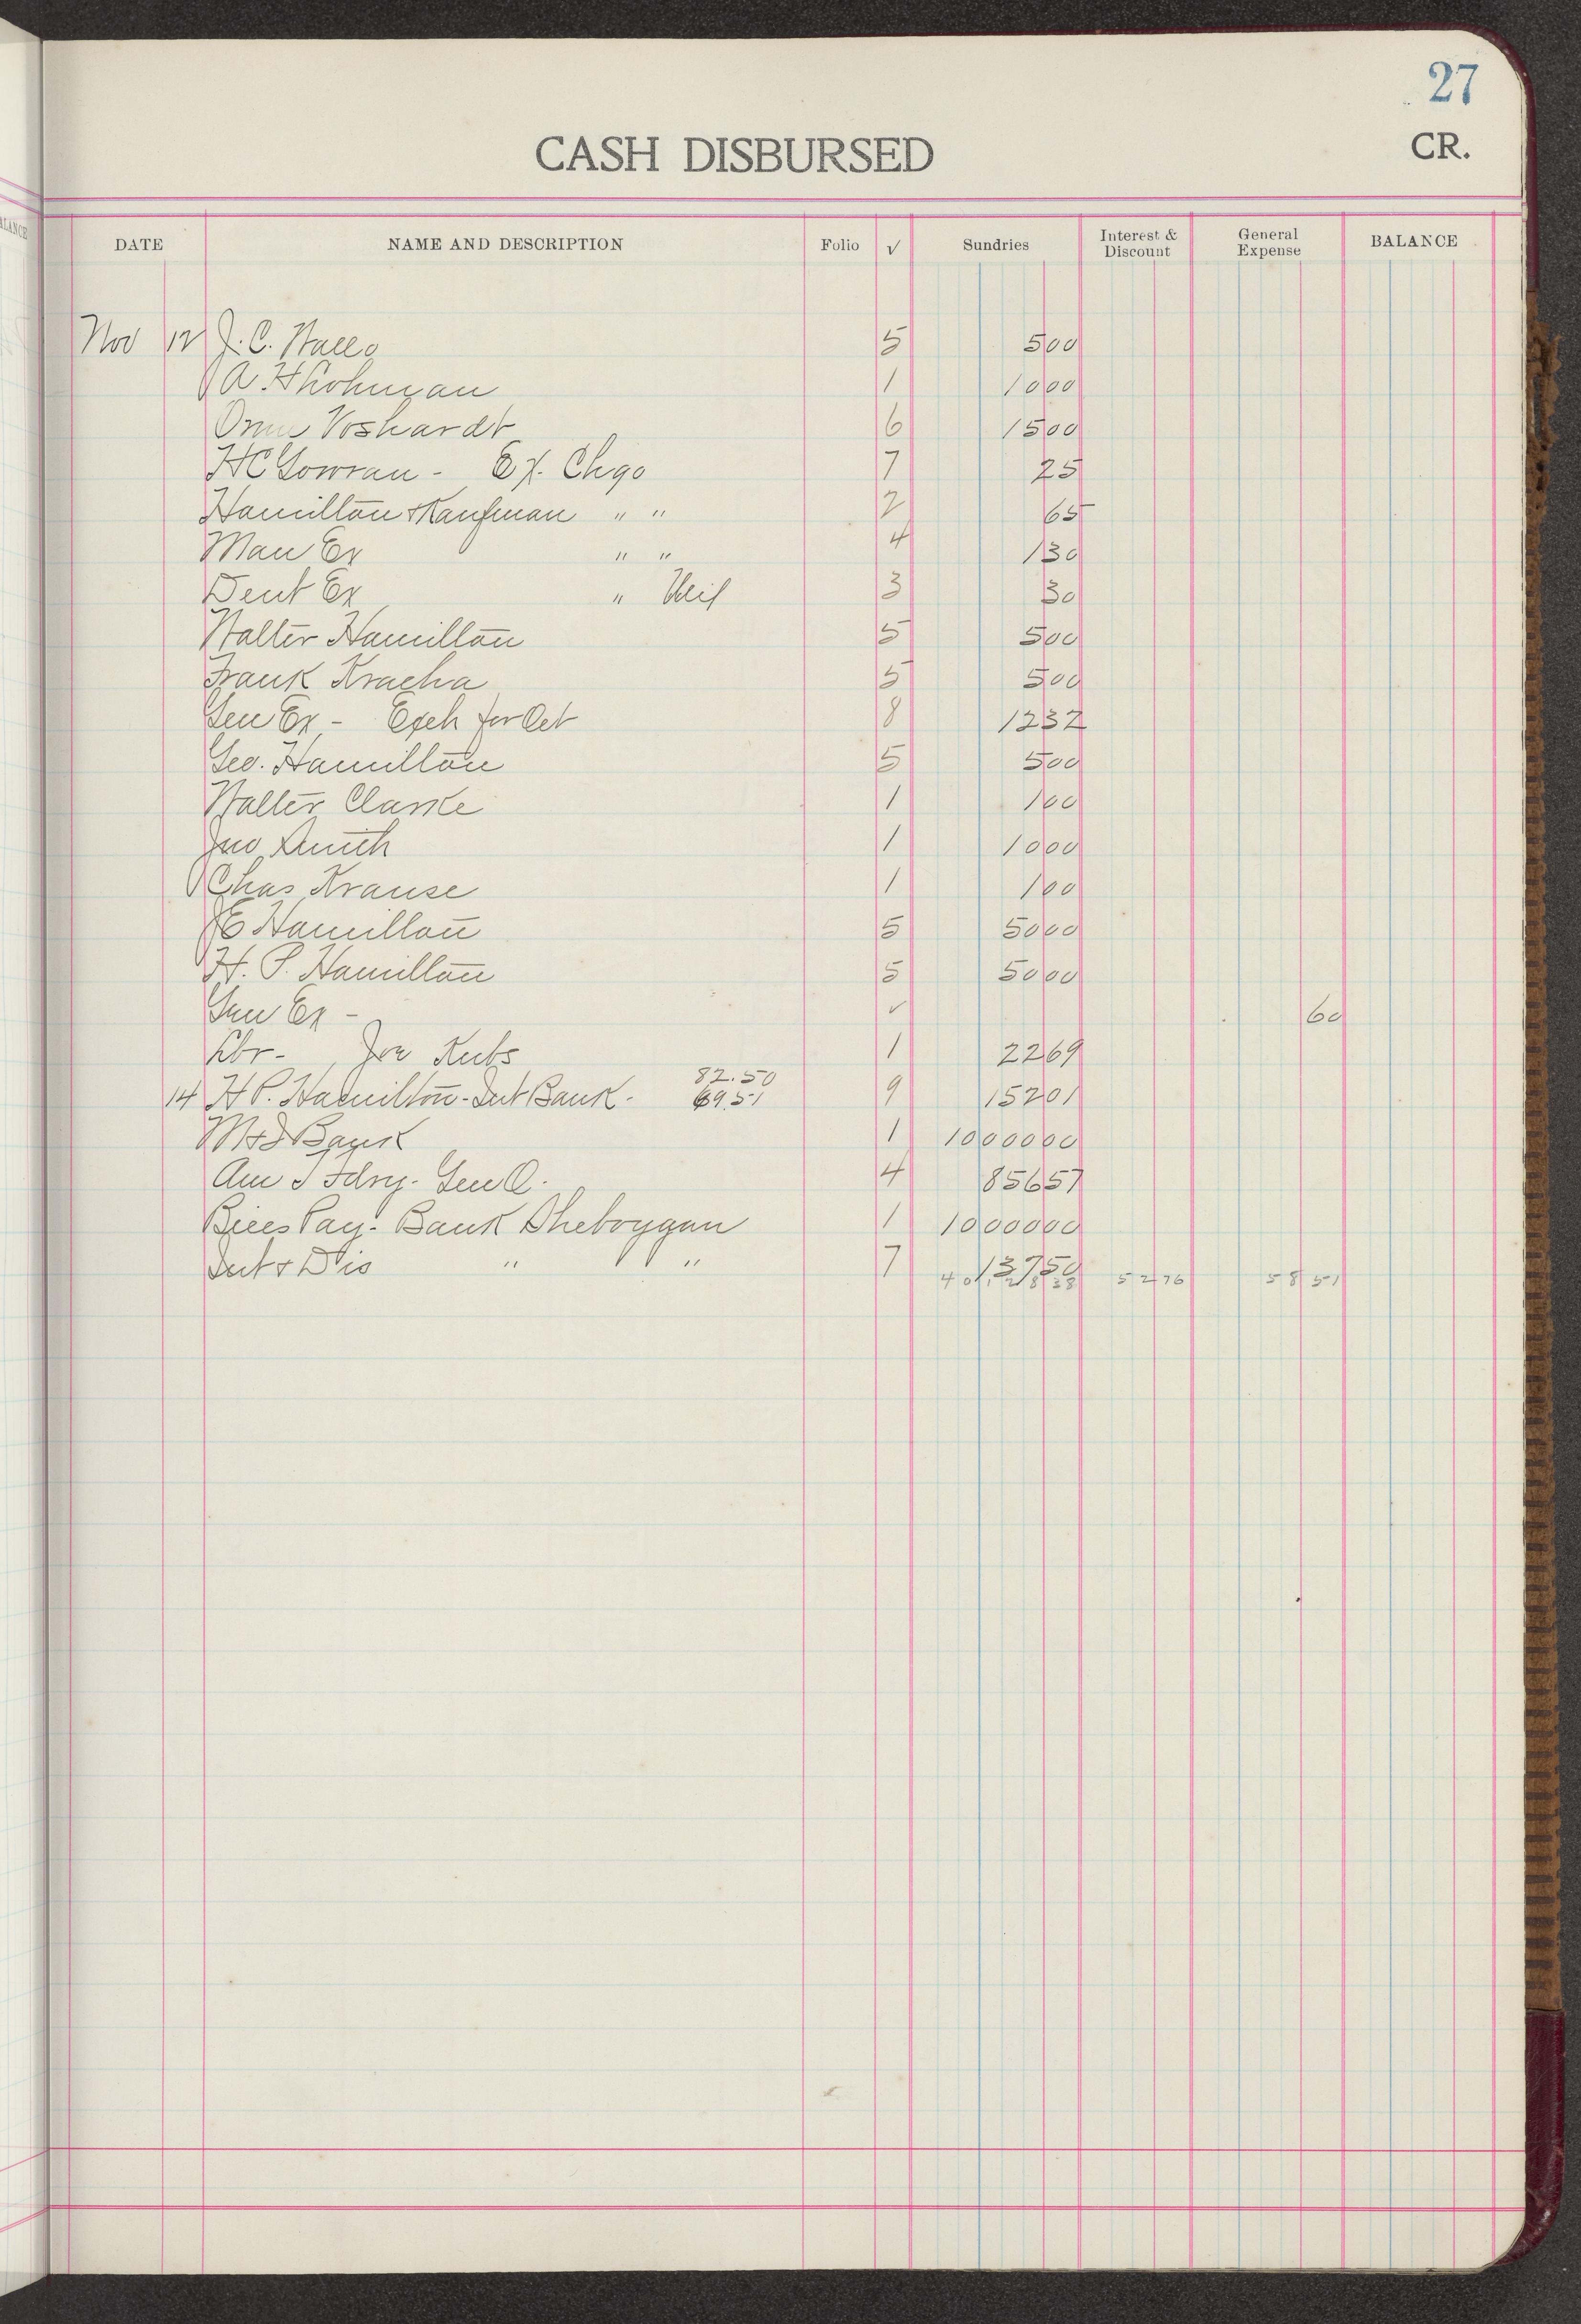 27
CASH DISBURSED
CR.
DATE NAME AND DESCRIPTION Folio √ Sundries Interest & Discount General Expense BALANCE
Nov 12 J. C. 5 500
A. H Lohman 1 1000
Voshardt 6 1500
H C Gowran - Ex. Chgo 7 25
Hamilton & Kaufman " " 2 65
Man Ex " " 4 130
Dent Ex " Mil 3 30
Walter Hamilton 5 500
Frank Kracha 5 500
Gen Ex - Exch for Oct 8 1232
Geo. Hamilton 5 500
Walter Clarke 1 100
Jno Smith 1 1000
Chas Krause 1 100
J E Hamilton 5 5000
H. P. Hamilton 5 5000
Gen Ex - ✓ 60
Lbr - Joe Kubs 1 2269
82.50
14 H P. Hamilton - Int Bank - 69.51 9 15201
M & I Bank 1 1000000
Am T Fdry - Gen O. 4 85657
Bills Pay - Bank Sheboygan 1 1000000
Int & Dis " " 7 13750
4012838 5276 5851